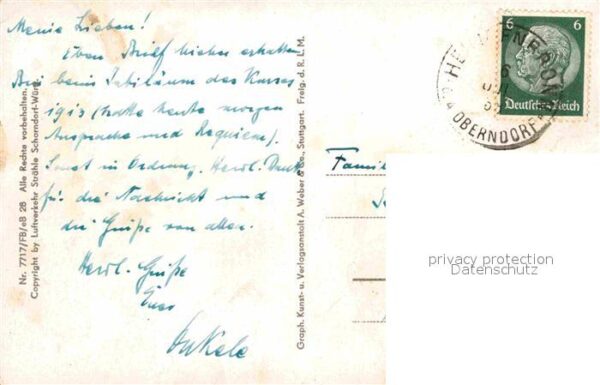 Meine Lieben!
Eben Brief hieher erhalten
Bin beim Jubiläum des Kurses
1913 (hatte heute morgen
Ansprache und Requiem).
Sonst in Ordnung. Herzl. Dank
für die Nachricht und
die Grüße von allen.
Herzl. Grüße
Euer
Onkele
Nr. 7717/FB/eB 28 Alle Rechte vorbehalten.
Copyright by Luftverkehr Strähle Schorndorf-Württ.
Graph. Kunst- u. Verlagsanstalt A. Weber & Co., Stuttgart. Freig. d. R. L. M.
6 6
Deutsches Reich
OBERNDORF
Famili
privacy protection
Datenschutz